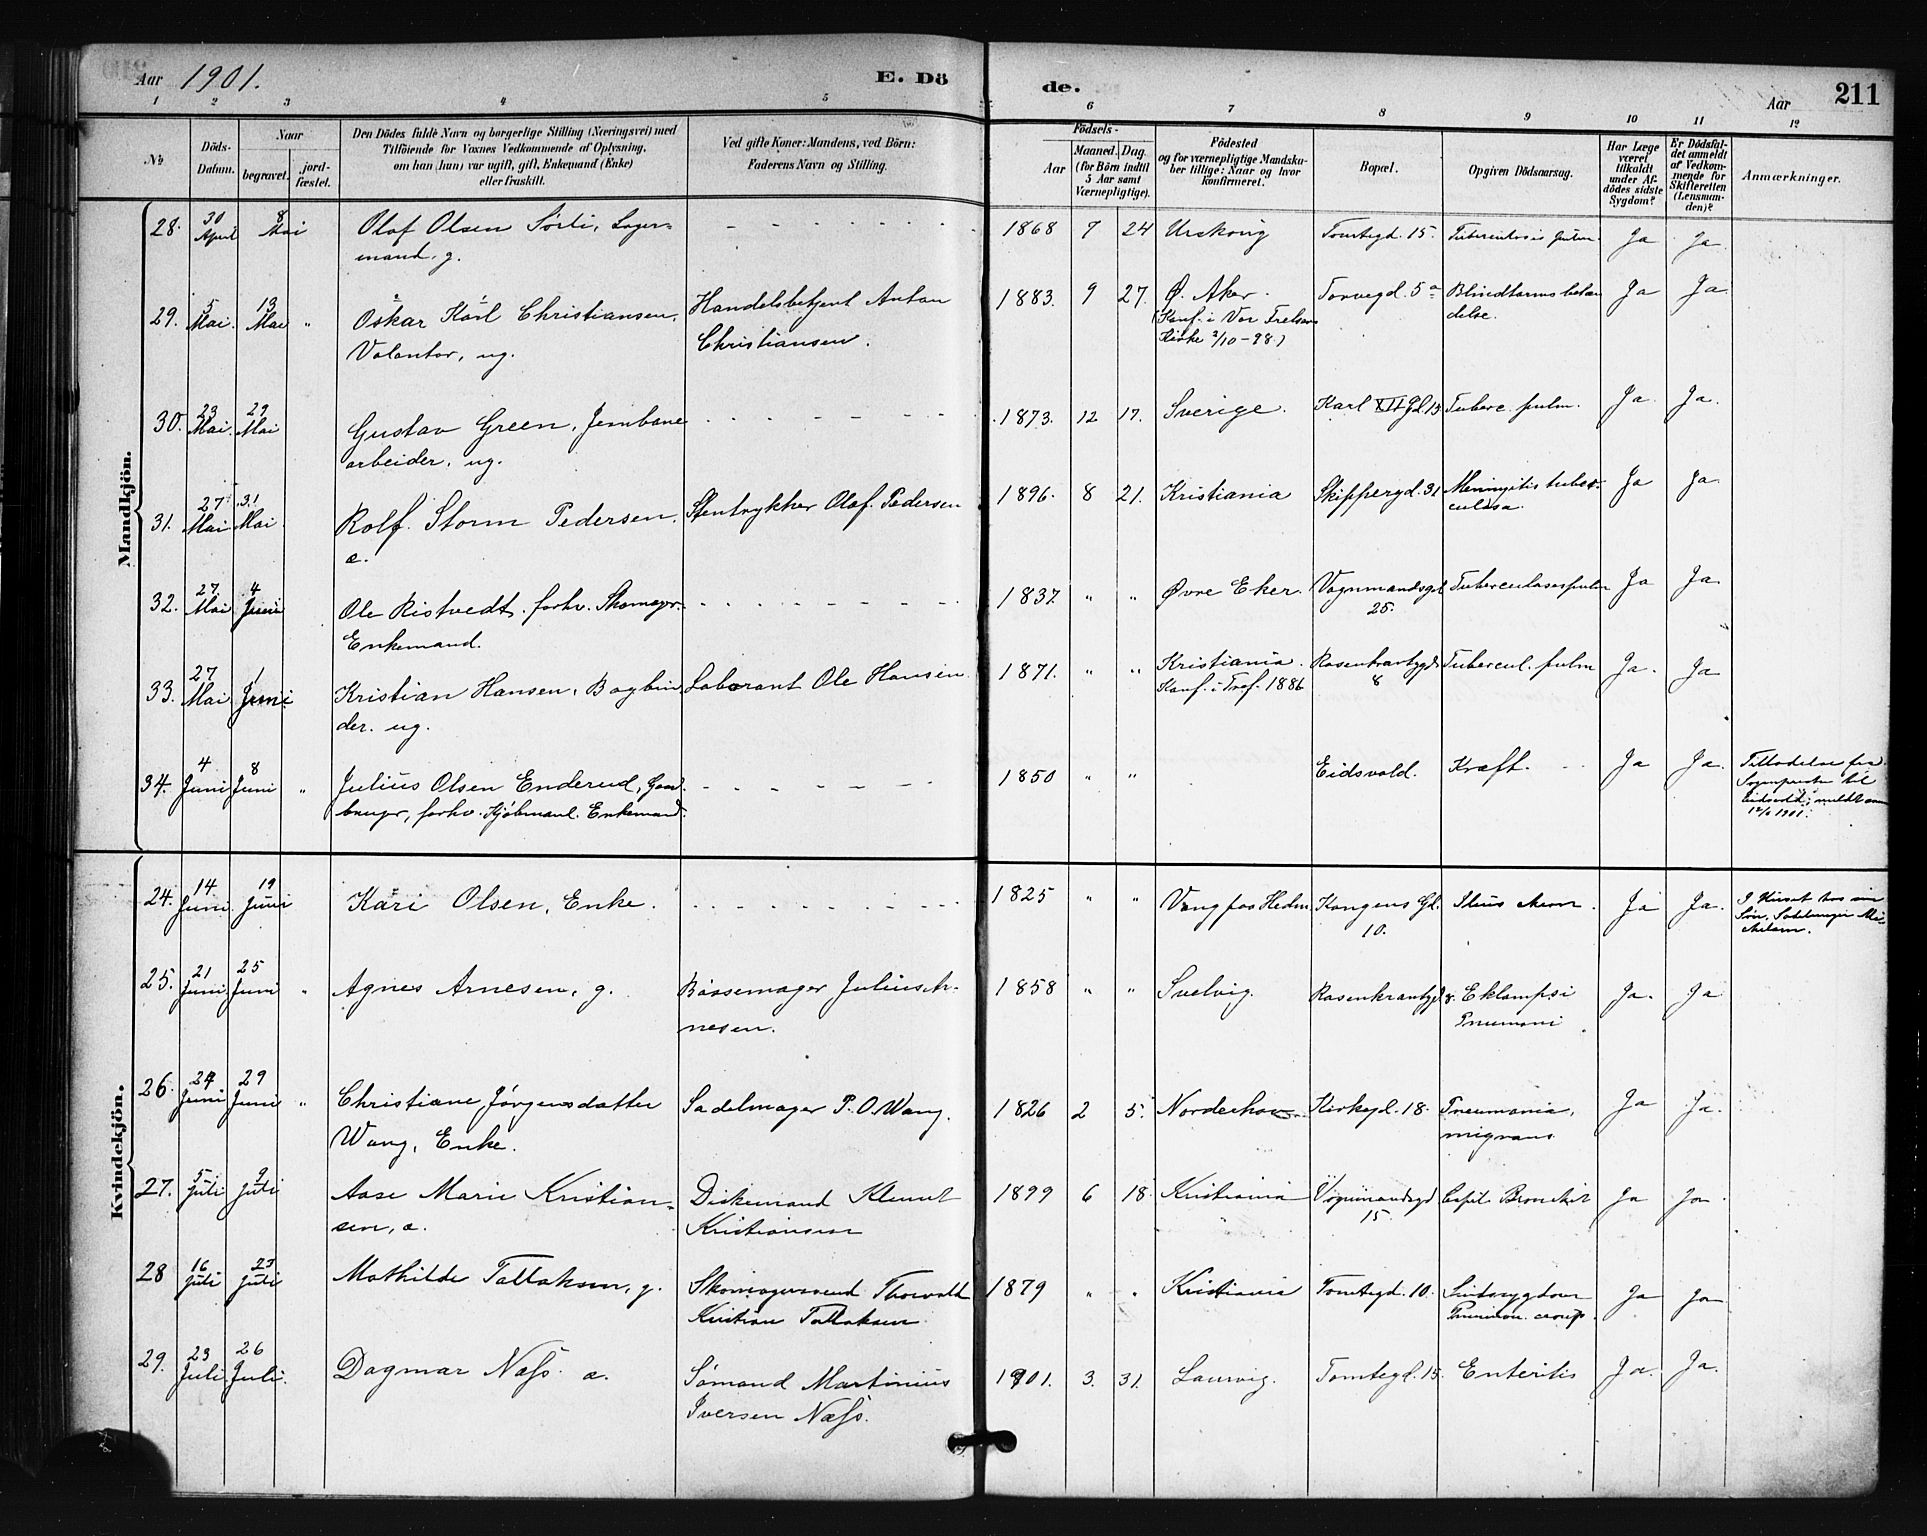 Aar 1901.
E. Dö
de.
Aar
211
1 2 3 4 5 6 7 8 9 10 11 12
No
Döds-Datum.
Naar
begravet.
jord-fæstet.
Den Dödes fulde Navn og borgerlige Stilling (Næringsvei) med
Tilföiende for Voxnes Vedkommende af Oplysning,
om han (hun) var ugift, gift, Enkemand (Enke)
eller fraskilt.
Ved gifte Koner: Mandens, ved Börn:
Faderens Navn og Stilling.
Födsels-
Aar
Maaned. Dag.
(for Börn indtil
5 Aar samt
Værnepligtige).
Födested
og for værnepligtige Mandska-
ber tillige: Naar og hvor
konfirmeret.
Bopæl.
Opgiven Dödsaarsag.
Har Læge
været
tilkaldt
under Af-
dödes sidste
Sygdom?
Er Dödsfal-
det anmeldt
af Vedkom-
mende for
Skifteretten
(Lensman-
den)?
Anmærkninger.
Mandkjön.
28. 30 April 8 Mai Olaf Olsen Sörli, Lager- 1868 7 24 Urskoug Tomtegd. 15. Tuberculosis pulm. Ja Ja
mand, g.
29. 5 Mai. 13 Mai " Oskar Karl Christiansen, Handelsbetjent Anton 1883. 9 27. Ø. Aker. Torvegd. 5a Blindtarmsbetæn Ja Ja
Volontør, ug. Christiansen. (Konf. i Vor Frelsers delse.
Kirke 2/10-98.)
30. 23 Mai. 29 Mai Gustav Green, Jernbane 1873. 12 17. Sverige. Karl XII Gd. 13 Tuberc. pulm. Ja Ja.
arbeider, ug.
31. 27 Mai 31 Mai Rolf Storm Pedersen, Stentrykker Olaf Pedersen 1896. 8 21. Kristiania Skippergd. 31 Meningitis tuber- Ja Ja.
e. culosa.
32. 27 Mai 4 Juni Ole Ristvedt, forhv. Skomager 1837. " " Øvre Eker. Vognmandsgd Tuberculosis pulm Ja Ja.
Enkemand. 25.
33. 27 Mai 1 Juni Kristian Hansen, Bogbin Laborant Ole Hansen. 1871. " " Kristiania. Rosenkrantzgd Tubercul. pulm Ja. Ja
der. ug. Konf. i Tref. 1886 8
34. 4 Juni 8 Juni " Julius Olsen Enderud, Gaard 1850 " " Eidsvold. Kræft. Ja Ja. Tilladelse fra
bruger, forhv. Kjöbmand. Enkemand. Sogneprest til
Eidsvold;
1901.
Kvindekjön.
24. 14 Juni. 19 Juni Kari Olsen, Enke. 1825 " " Vang paa Hedm. Kongens Gd. Ja Ja. I Huset hos sin
10. Sön, Sadelmager
25. 21 Juni 25 Juni " Agnes Arnesen, g. Børsemager Julius Ar- 1858 " " Svelvig. Rosenkrantzgd 8. Eklampsi Ja. Ja
nesen. Pneumoni
26. 24 Juni 29 Juni " Christiane Jörgensdatter Sadelmager P. O. Wang. 1826 2 5. Norderhov Kirkegd. 18. Pneumonia, Ja Ja.
Wang, Enke. migrans
27. 5 Juli 9 Juli Aase Marie Kristian- Diskemand Klemet 1899 6 18. Kristiania Vognmandsgd Capil. Bronchit Ja Ja.
sen, e. Kristiansen 15.
28 16 Juli 23 Juli Mathilde Tollaksen, g. Skomagersvend Thorvald 1879 " " Kristiania Tomtegd. 10. Sindssygdom Ja Ja
Kristian Tollaksen. Pneumon. croup.
29. 23 Juli. 26 Juli. Dagmar Næss. e. Sömand Martinius 1901. 3. 31. Laurvig. Tomtegd. 15. Enteritis Ja. Ja.
Iversen Næss.